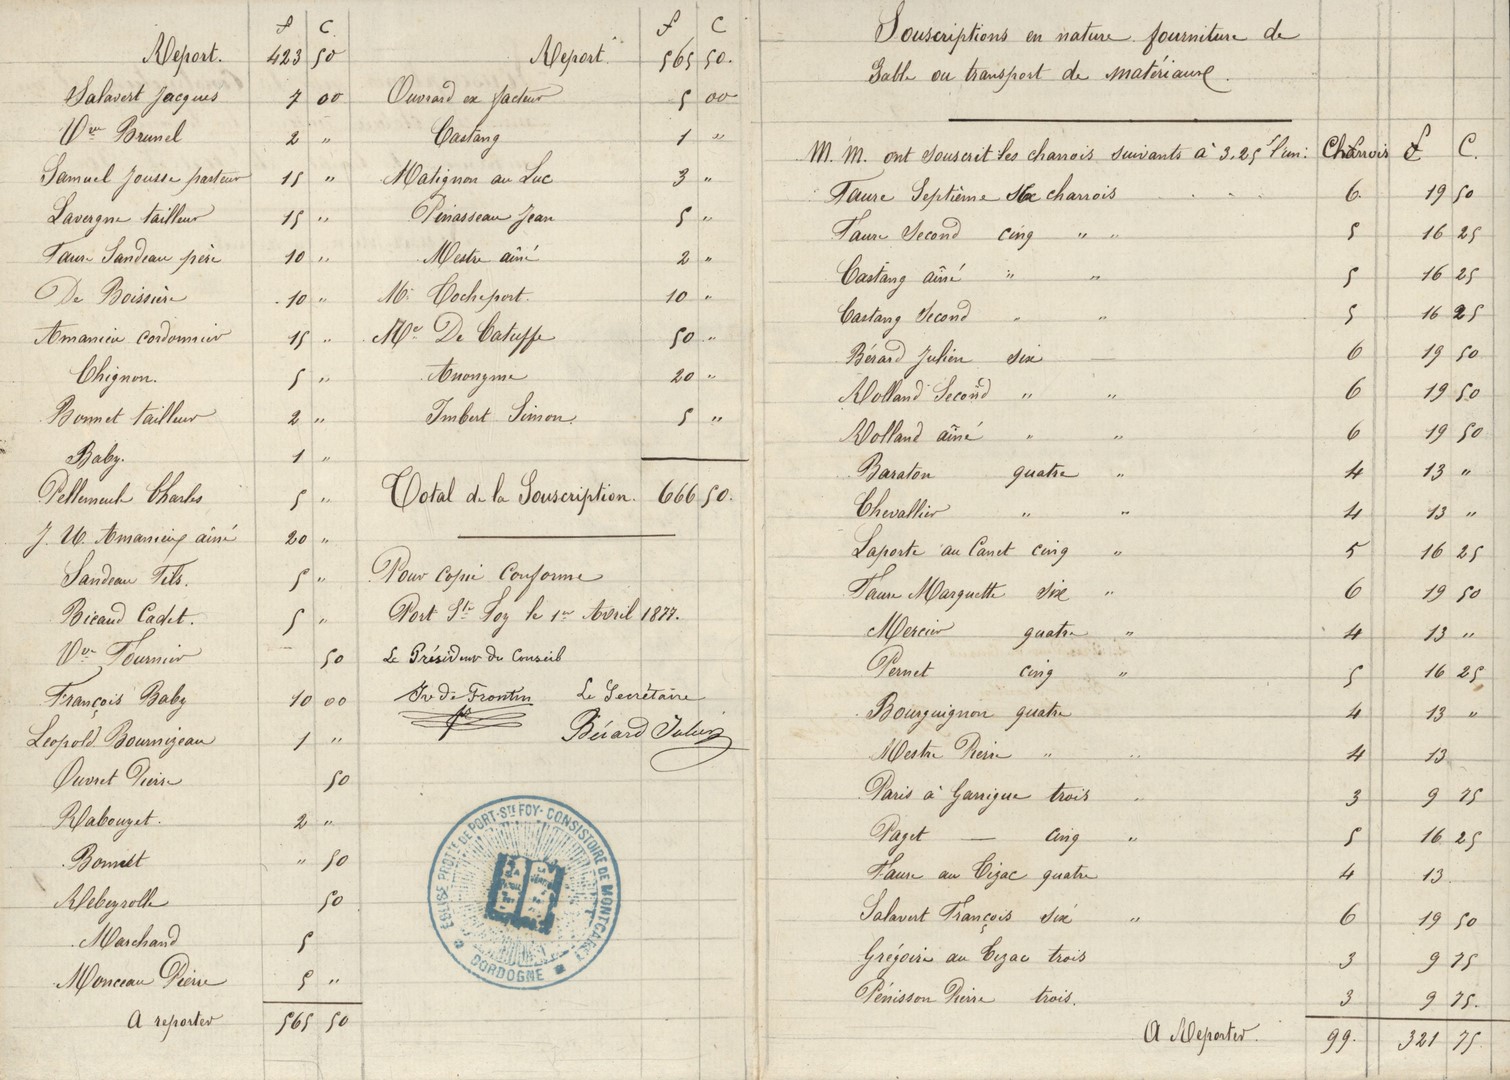 f C
Report. 423 50
Salavert Jacques 7 00
Vve Brunel 2 "
Samuel Jousse pasteur 15 "
Lavergne tailleur 15 "
Faure Landeau père 10 "
De Boissière 10 "
Amanieu cordonnier 15 "
Chignon. 5 "
Bonnet tailleur 2 "
Baby. 1 "
Charles 5 "
J. U. Amanieux aîné 20 "
Landeau Fils. 5 "
Bicaud Cadet. 5 "
Vve Fournier 50
François Baby 10 00
Léopold Bournizeau 1 "
Ouvret Pierre 50
Rabouzet. 2 "
Bonnet " 50
Rebeyrolle 50
Marchand 5
Monceau Pierre 5 "
A reporter 565 50
f C
Report 565 50.
Ouvrard ex facteur 5 00
Castang 1 "
Matignon au Luc 3 "
Pinasseau Jean 5 "
Mestre aîné 2 "
Mr Cocheport. 10 "
Me De Catuffe 50 "
Anonyme 20 "
Imbert Simon. 5 "
Total de la Souscription. 666 50.
Pour copie conforme
Port Ste Foy le 1er Avril 1877.
Le Président du Conseil
Le Secrétaire
de Frontin
Bérard Julien
EGLISE PROTte DE PORT-Ste FOY-CONSISTOIRE DE MONTCARET
DORDOGNE
Souscriptions en nature fourniture de
Sable ou transport de matériaux.
M. M. ont souscrit les charrois suivants à 3,25 l'un: Charrois f C.
Faure Septième six charrois 6. 19 50
Faure Second cinq " " 5 16 25
Castang aîné " " 5 16 25
Castang Second " " 5 16 25
Bérard Julien six — 6 19 50
Rolland Second " " 6 19 50
Rolland aîné " " 6 19 50
Baraton quatre " 4 13 "
Chevallier " " 4 13 "
Laporte au Canet cinq " 5 16 25
Faure Marguette six " 6 19 50
Mercier quatre " 4 13 "
Pernet cinq " 5 16 25
Bourguignon quatre 4 13 "
Mestre Pierre " " 4 13
Paris à Garrigue trois " 3 9 75
Paget — cinq " 5 16 25
Faure au Tizac quatre 4 13
Salavert François six " 6 19 50
Grégoire au Tizac trois 3 9 75
Pénisson Pierre trois. 3 9 75.
A Reporter. 99. 321 75